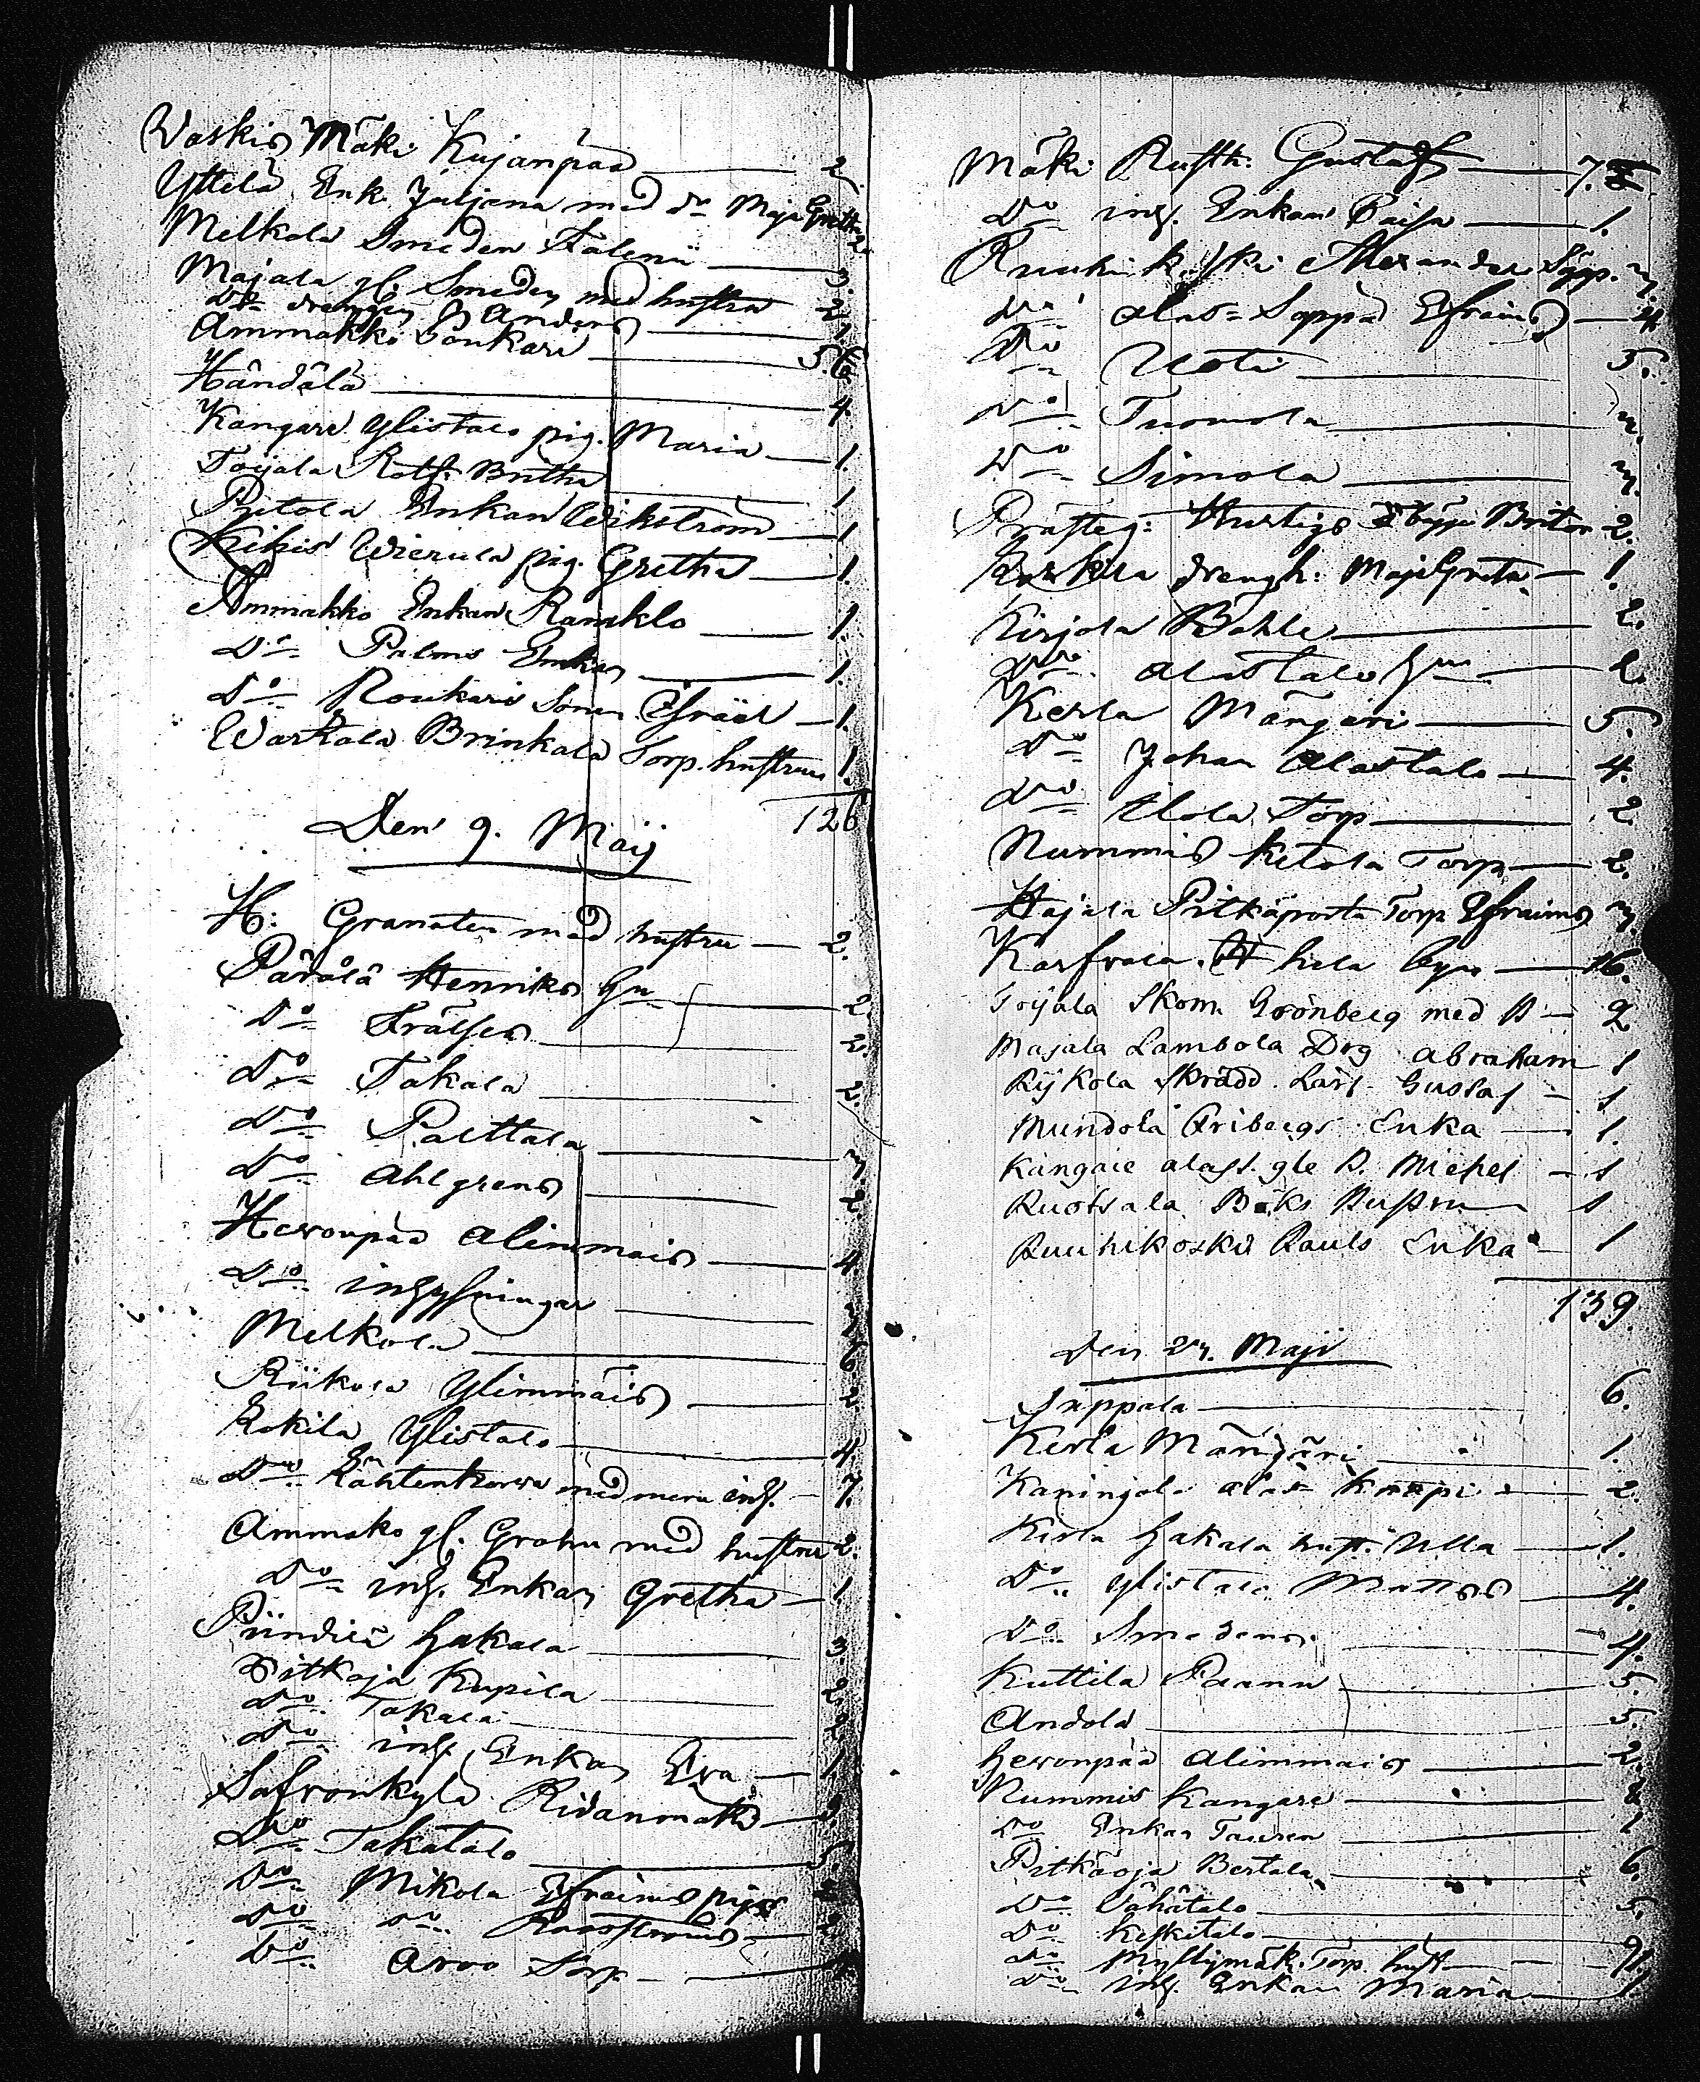 Waskis Mäki Kujanpää — 2.
Yttelä Enk. Juljana med dr Maja Gretha 2.
Melkola Smeden Falenii — 3.
Majala gl. Smeden med hustru 2.
Do drengen J Anders — 1.
Ammakko Soukari — 5. 6.
Händälä — 4.
Kangare Ylistalo pig. Maria — 1.
Toijala Britha — 1
Ritola Enkan Wikström — 1
Kikis Wierula pig. Gretha — 1.
Ammakko Enkan Ramklo — 1.
Do Palms Enkan — 1.
Do Roukaris Sonen Isräel — 1.
Warkala Brinkala Torp. hustrun 1.
126
Den 9. Maij
H: Granaten med hustru — 2.
Pärälä Henriks — 2.
Do Frälsen — 2.
Do Takala — 2.
Do Palttala — 3
Do Ahlgrens — 2.
Heronpää Alimmais — 4.
Do inhysningar
Melkola — 6
Riikola Ylimmäis — 2.
Kokila Ylistalo — 4
Do Lähtenkorwa med mera inh. — 7.
Ammako gl. Grohn med hustru 2.
Do inh. Enkan Gretha — 1.
Piindilä Hakala — 3.
Pitkoja Kupila — 2.
Do Takala — 2.
Do inh. Enkan Eva — 1
Safronkylä Ridanmäki — 3.
Do Takatalo — 5.
Do Mikola Efraims piga
Do Do Roosströms — 2.
Do Aroo Torp —
Mäki Rusth. Gustafs — 7.
Do inh. Enkan Caisa — 1.
Ruuhikoski Alexander Säpp. 3.
Do Alas-Soppa Efraims — 4.
Do Uoti — 5.
Do Tuomola — 3.
Do Simola — 3.
Prästeg: Hurtigs Britor 2.
drengh: MajaGreta — 1.
Kirjola Böhle — 2.
Do Alastalo — 2.
Kerla Mängäri — 5.
Do Johan Alastalo — 4.
Do Ilola Torp — 2.
Nummis Ketola Torp — 2.
Hajala Pitkäporta Torp Efraims 3
Karfvola hela byn — 16.
Toijala Skom. Grönberg med D — 2
Majala Lambola Drg Abraham 1
Rijkola Skrädd. Lärl. Gustaf — 1
Mundola Fribergs Enka — 1.
Kangare alast. gle D. Michel — 1
Ruotsala Böks Hustru — 1
Ruuhikoski Pauls Enka — 1
139.
Den 24. Maji
Suppala — 6.
Kerla Mängäri — 1.
Kaningola alas Knapi — 2.
Kerla Hakala hust. Ulla — 1.
Do Ylistalo Mattas — 4.
Do Smedens — 4.
Kuttila Paanu — 5.
Andola — 5.
Heronpää Alimmais — 2.
Nummis Kangare —
Do Enkan Tauren — 1
Pitkäoja Bertala — 6.
Do Vähätalo — 5.
Do Keskitalo — 9.
Do Myllymäk. Torp. hust — 1.
Do inh. Enkan Maria — 1.